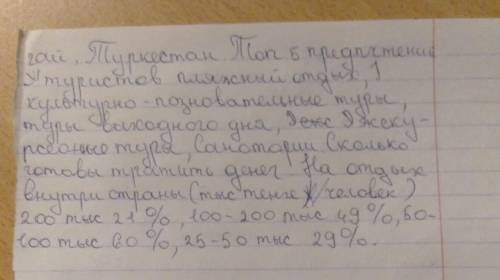 гай. Туркестан. Топ 5 предпчтение
У туристов пляжный отдых,
культурно-позновательные туры,
туры выходного дна, Экску-
рсеоные тура, Санотории Сколько
готовы тратить денег На отдых
внутри страны (тыс тенге /человек)
200 тыс 21%, 100-200 тыс 49%, 50-
100 тыс 60%, 25-50 тыс 29%.